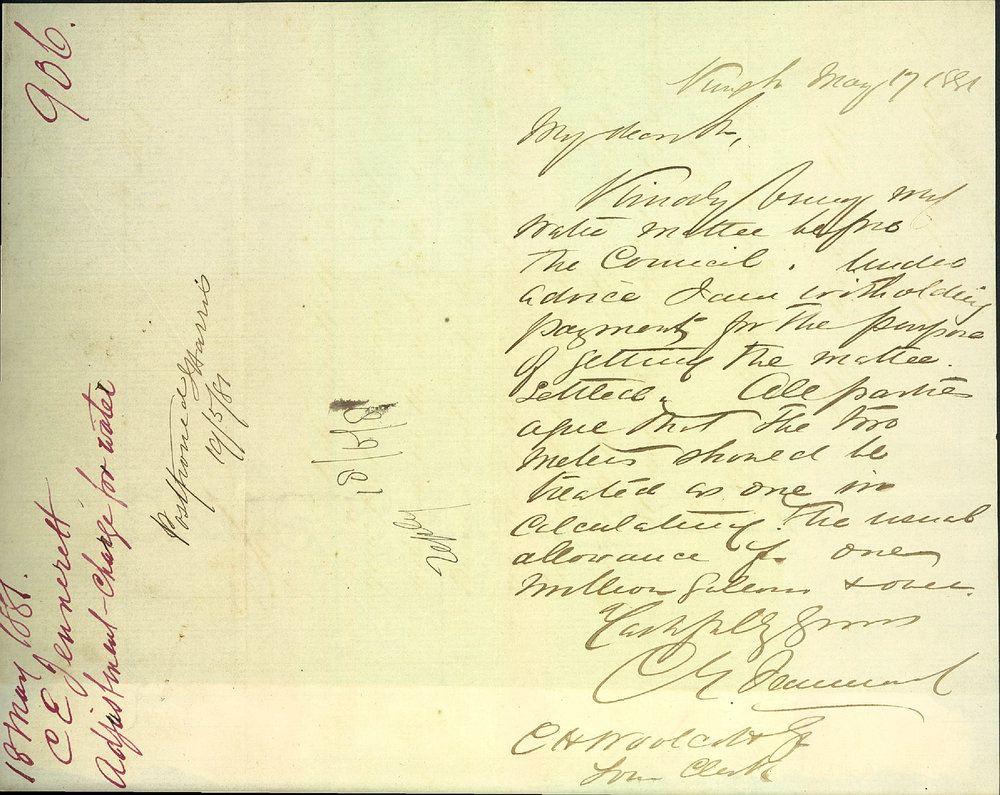 906.
18 May 1881.
C E Jennerett
Adjustment charge for water
Postponed Harris
19/5/81
18/5/81
May 17 1881
My dear Sir,
Kindly bring my
water matter before
the Council. Under
advice I am witholding
payment for the purpose
of getting the matter
settled. All parties
agree that the two
meters should be
treated as one in
calculating the usual
allowance for one
million galons & over.
Faithfully yours
C E
C H Woolcott Esq
Town Clerk